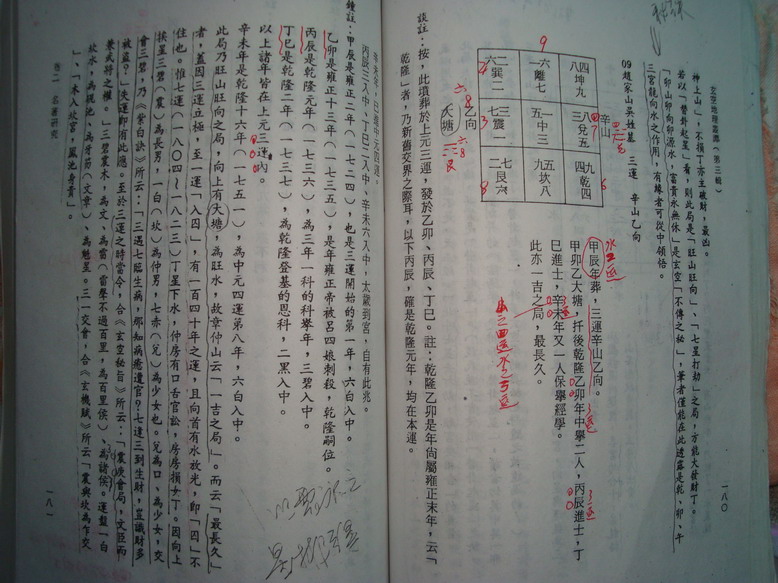 玄空地理叢譚(第三輯)
一八〇
神上山」,不損丁亦主破財,最凶。
若以「替卦起星」看,則此局是「旺山旺向」、「七星打劫」之局,方能大發財丁。
「卯山卯向卯源水,富貴永無休」是玄空「不傳之秘」,筆者僅能在此透露是乾、卯、午
三宮龍向水之作用,有緣者可從中領悟。
09趙家山吳姓墓 三運 辛山乙向
辛山
四 坤 九
八
八 兌 五
三
九
四 乾 四
六 離 七
一
一 中 三
五
五 坎 八
九
二
六 巽 二
三
七 震 一
七
二 艮 六
乙向
大塘
甲辰年葬,三運辛山乙向。
甲卯乙大塘,扦後乾隆乙卯年中舉二人,丙辰進士,丁
巳進士,辛未年又一人保舉經學。
此亦一吉之局,最長久。
談註:按,此墳葬於上元三運,發於乙卯、丙辰、丁巳。註:乾隆乙卯是年尚屬雍正末年,云「
乾隆」者,乃新舊交界之際耳,以下丙辰,確是乾隆元年,均在本運。
丙辰三入中、丁巳二入中、辛未六入中,太歲到宮,自有此兆。
鐘註:甲辰是雍正二年(一七二四),也是三運開始的第一年,六白入中。
乙卯是雍正十三年(一七三五),是年雍正帝被呂四娘刺殺,乾隆嗣位。
丙辰是乾隆元年(一七三六),為三年一科的科舉年,三碧入中。
丁巳是乾隆二年(一七三七),為乾隆登基的恩科,二黑入中。
以上諸年皆在上元三運內。
辛未年是乾隆十六年(一七五一),為中元四運第八年,六白入中。
此局乃旺山旺向之局,向上有大塘,為旺水,故章仲山云「一吉之局」。而云「最長久」
者,蓋因三運立極,至一運「入囚」,有一百四十年之運,且向首有水放光,即「囚」不
住也。惟七運(一八〇四~一八二三)丁星下水,仲房有口舌官訟,房房損女丁。因向上
挨星三碧(震)為長男,一白(坎)為仲男,七赤(兌)為少女也。兌為口、為少女,交
會三碧,乃《紫白訣》所云:「三遇七臨生病,那知病癒遭官?七逢三到生財,豈識財多
被盜?」失運即有此應。至於三運之時當令,合《玄空秘旨》所云:「震庚會局,文臣而
兼武將之權。」三碧震木,為文、為雷(當聲不過百里,為百里侯)、為諸侯。運盤一白
坎水,為硯池、為牙笏(文章)、為魁星。三一交會,合《玄機賦》所云「震與坎為乍交
」、「木入坎宮,鳳池身貴」。
卷二 名墓研究
一八一